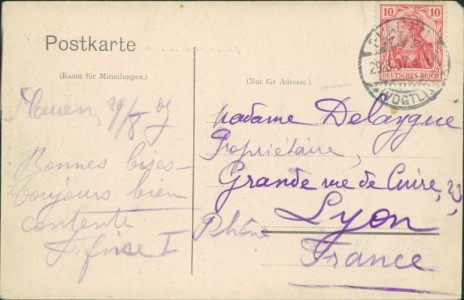 Postkarte
(Raum für Mitteilungen.)
(Nur für Adresse.)
10 10
DEUTSCHES REICH
Plauen 29/8 07
Bonnes bises
toujours bien
contente
Madame Delaygue
Propriétaire,
Grande rue de Cuire, 23,
Lyon
Rhône
France